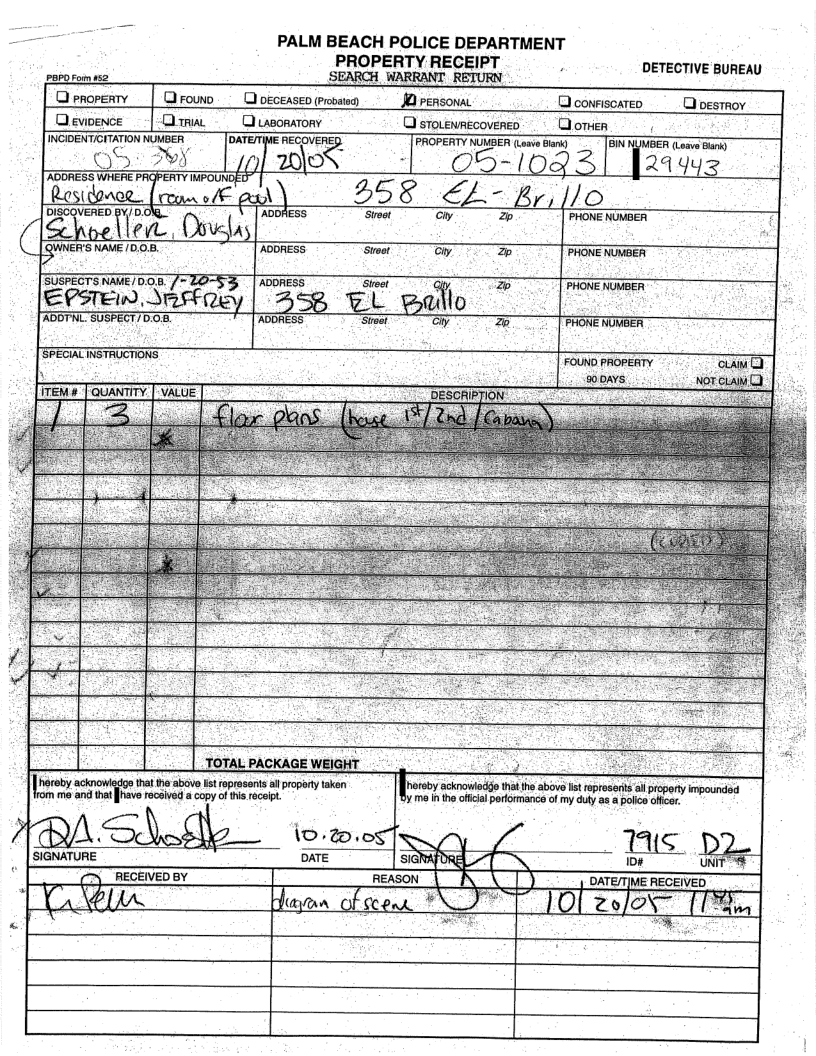 PALM BEACH POLICE DEPARTMENT
PROPERTY RECEIPT
SEARCH WARRANT RETURN
DETECTIVE BUREAU
PBPD Form #52
PROPERTY FOUND DECEASED (Probated) PERSONAL CONFISCATED DESTROY
EVIDENCE TRIAL LABORATORY STOLEN/RECOVERED OTHER
INCIDENT/CITATION NUMBER DATE/TIME RECOVERED PROPERTY NUMBER (Leave Blank) BIN NUMBER (Leave Blank)
05 368 10/20/05 05-1023 29443
ADDRESS WHERE PROPERTY IMPOUNDED
Residence (room off pool) 358 EL-Brillo
DISCOVERED BY / D.O.B. ADDRESS Street City Zip PHONE NUMBER
Schoeller, Douglas
OWNER'S NAME / D.O.B. ADDRESS Street City Zip PHONE NUMBER
SUSPECT'S NAME / D.O.B. 1-20-53 ADDRESS Street City Zip PHONE NUMBER
EPSTEIN, JEFFREY 358 EL Brillo
ADDT'NL. SUSPECT / D.O.B. ADDRESS Street City Zip PHONE NUMBER
SPECIAL INSTRUCTIONS
FOUND PROPERTY CLAIM
90 DAYS NOT CLAIM
ITEM # QUANTITY VALUE DESCRIPTION
1 3 floor plans (house 1st/2nd/Cabana)
TOTAL PACKAGE WEIGHT
I hereby acknowledge that the above list represents all property taken
from me and that I have received a copy of this receipt.
I hereby acknowledge that the above list represents all property impounded
by me in the official performance of my duty as a police officer.
10.20.05 7915 D2
SIGNATURE DATE SIGNATURE ID# UNIT
RECEIVED BY REASON DATE/TIME RECEIVED
diagram of scene 10/20/05 11 am